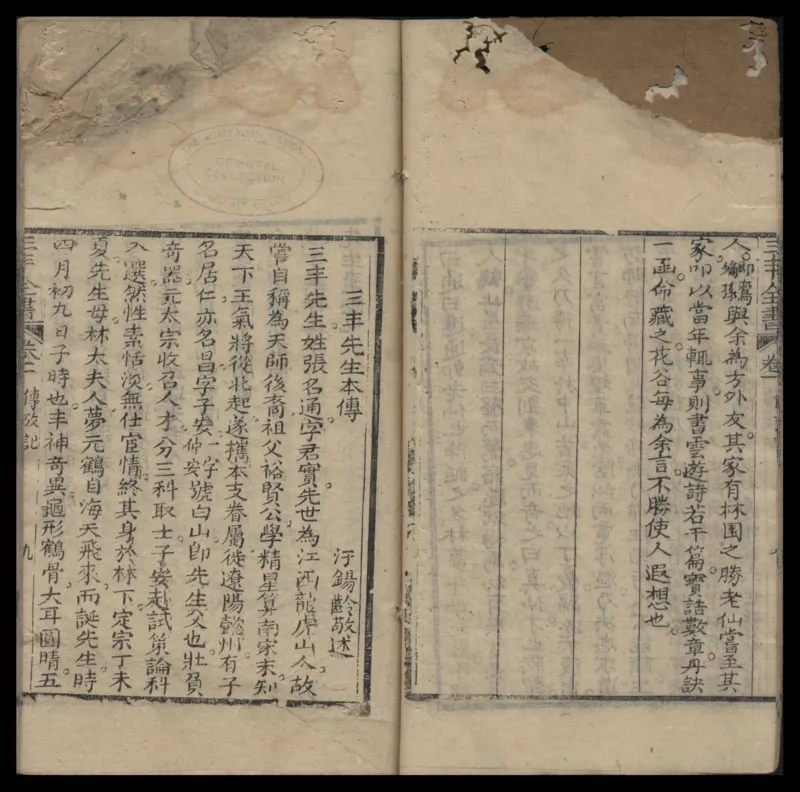 三丰全書
卷一
人。與余為方外友。其家有林園之勝老仙嘗至其
家。叩以當年輒事。則書雲遊詩若干篇。寶誥數章。丹訣
一函。命藏之。花谷每為余言。不勝使人遐想也。
THE AUSTRALIAN NATIONAL
ORIENTAL
COLLECTION
三丰先生本傳
汙錫齡敬述
三丰先生姓張名通字君實先世為江西龍虎山人故
嘗自稱為天師後裔祖父裕賢公學精星算南宋末知
天下王氣將從北起遂攜本支眷屬徙遼陽懿州有子
名居仁亦名昌字子安一字仲安號白山即先生父也壯負
奇器元太宗收召人才分三科取士子安赴試策論科
入選然性素恬淡無仕宦情終其身於林下定宗丁未
夏先生母林太夫人夢元鶴自海天飛來而誕先生時
四月初九日子時也丰神奇異龜形鶴骨大耳圓睛五
三丰全書
卷二
傳
記
九